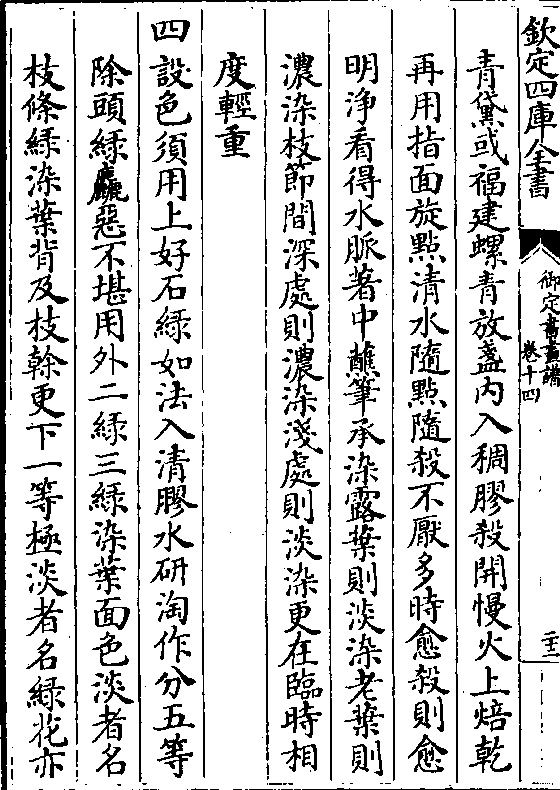 欽定四庫全書
御定書畫譜
卷十四
二十三
青黛或福建螺青放盞内入稠膠殺開慢火上焙乾
再用指面旋點清水隨點隨殺不厭多時愈殺則愈
明淨看得水脈著中蘸筆承染露葉則淡染老葉則
濃染枝節間深處則濃染淺處則淡染更在臨時相
度輕重
四設色須用上好石綠如法入清膠水研淘作分五等
除頭綠麤惡不堪用外二綠三綠染葉面色淡者名
枝條綠染葉背及枝榦更下一等極淡者名綠花亦